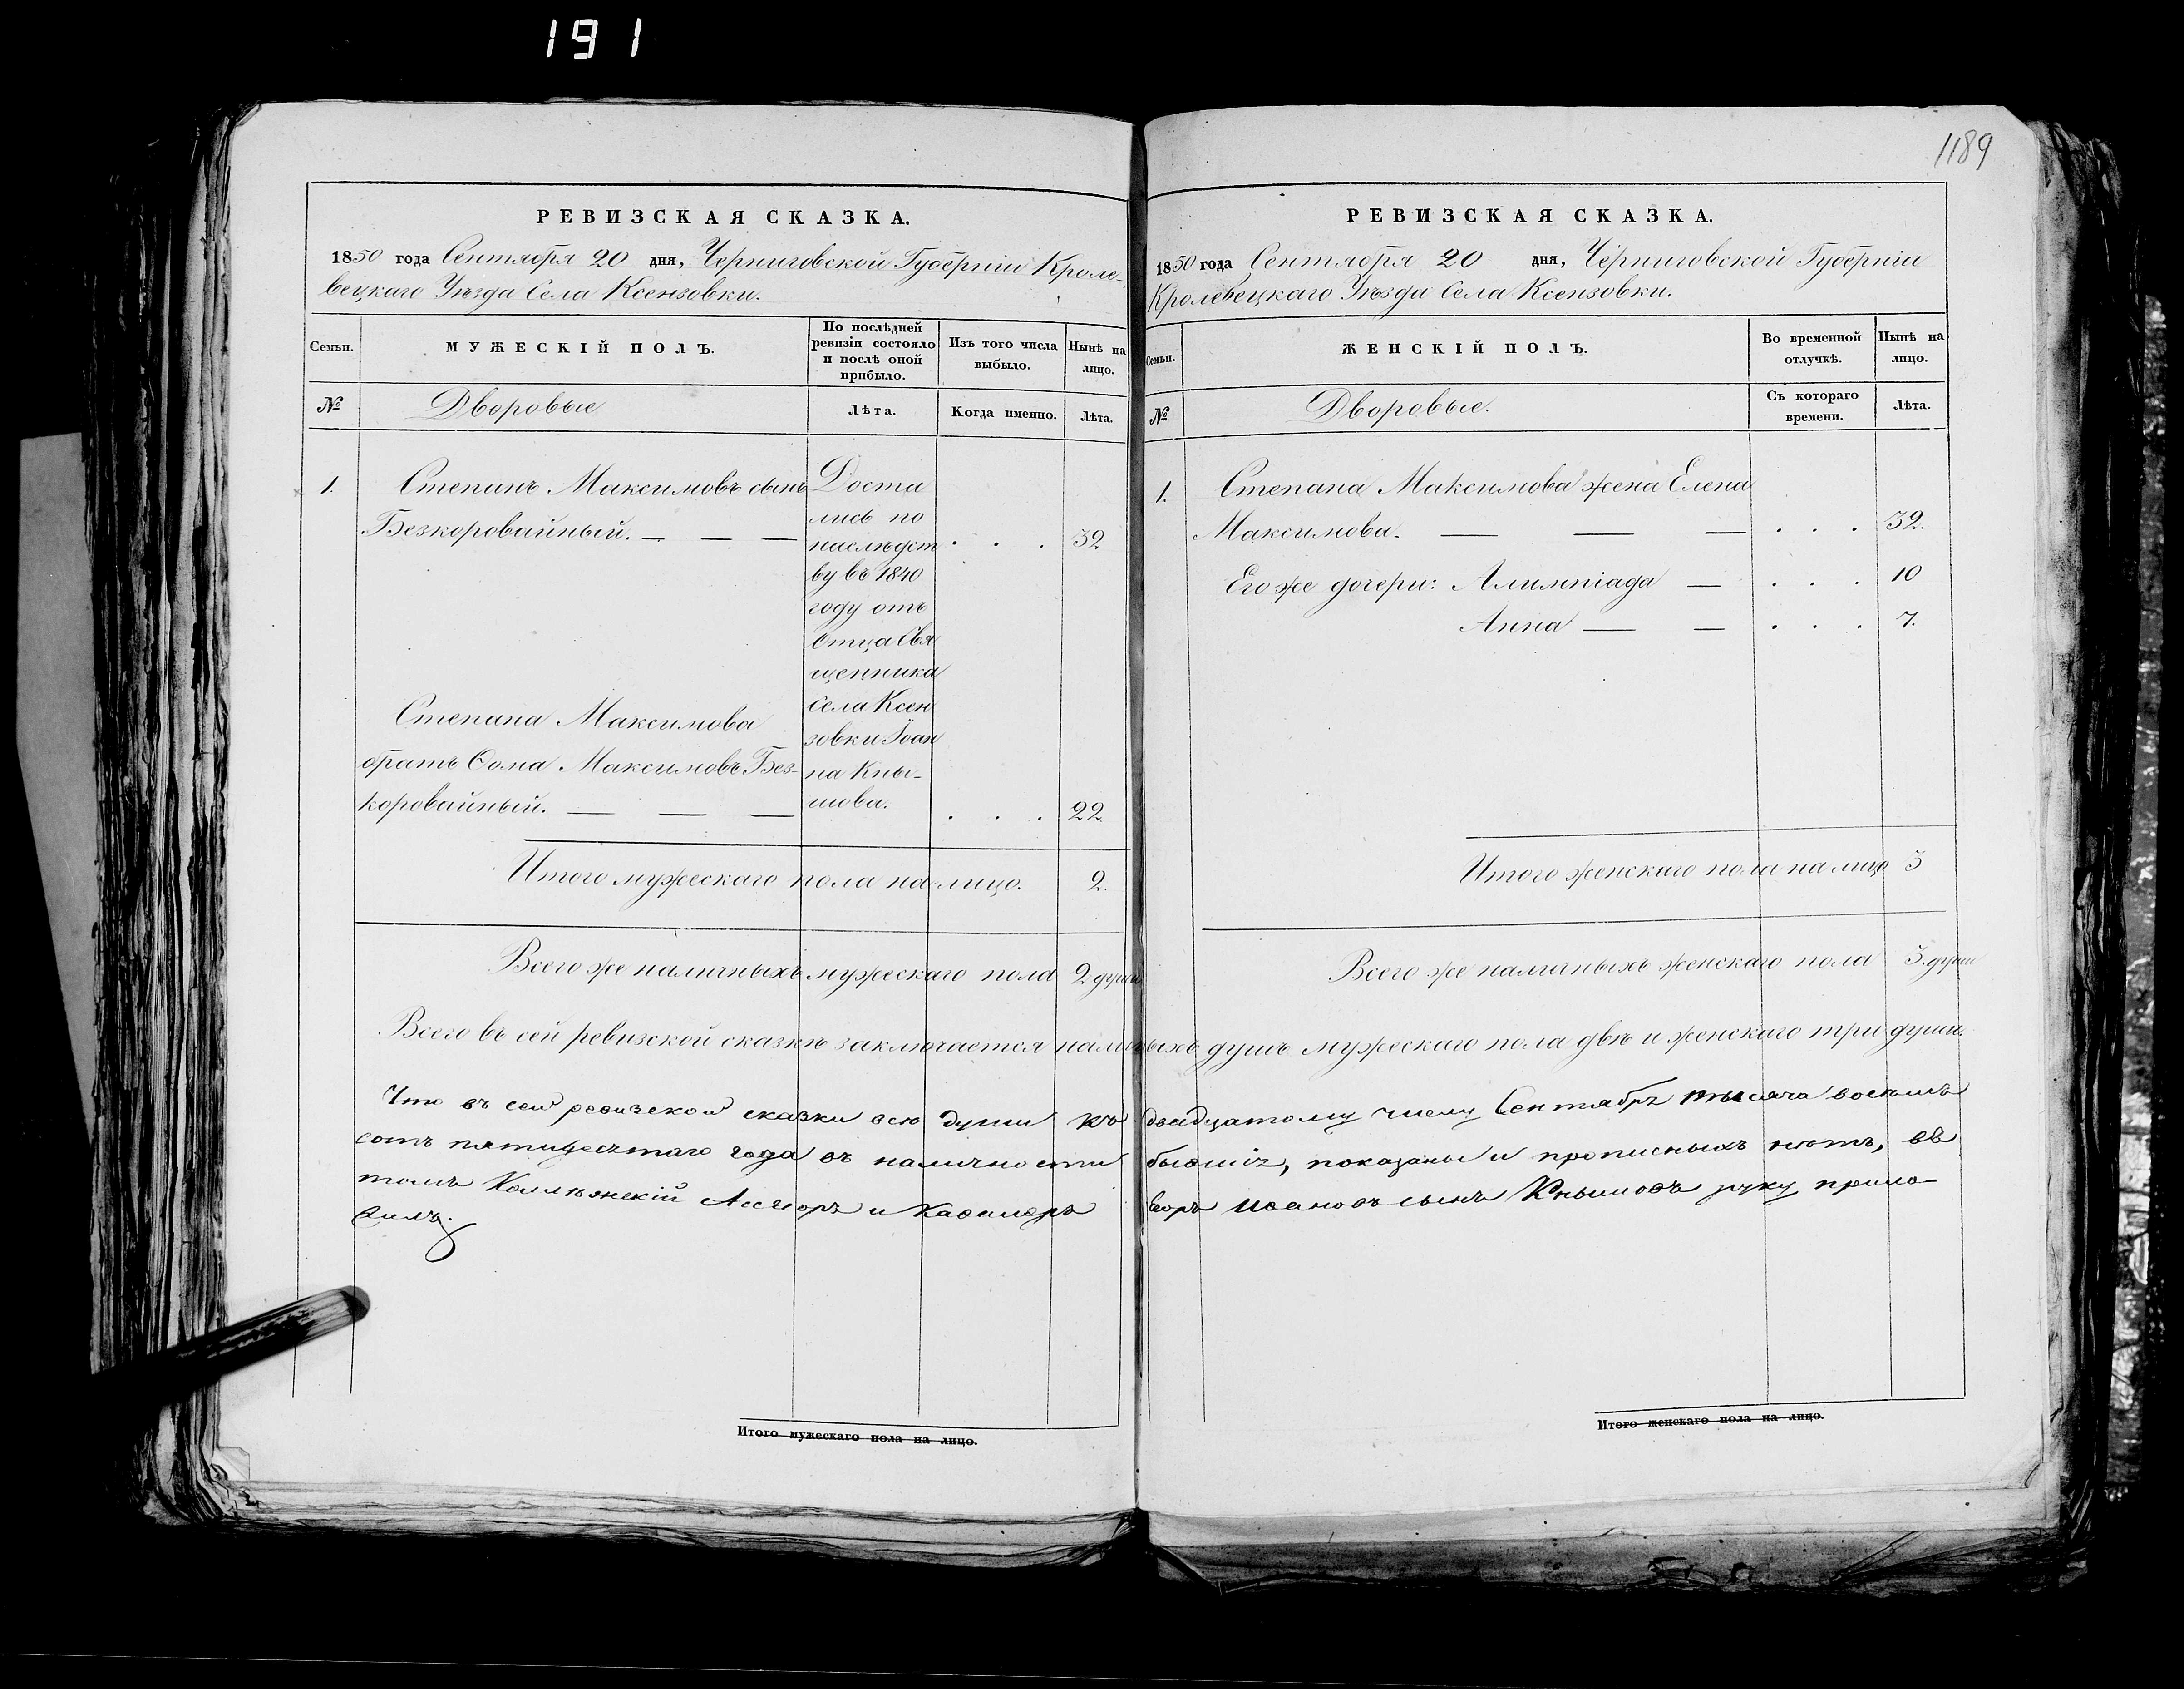 191
1189
РЕВИЗСКАЯ СКАЗКА.
1850 года Сентября 20 дня, Черниговской Губерніи Кроле-
вецкаго Уѣзда Села Ксензовки.
Семьи.
МУЖЕСКІЙ ПОЛЪ.
По послѣдней
ревизіи состояло
и послѣ оной
прибыло.
Изъ того числа
выбыло.
Нынѣ на
лицо.
№
Дворовые
Лѣта.
Когда именно.
Лѣта.
1. Степанъ Максимовъ сынъ
Безкоровайный. — — — . . . 32
Доста
лись по
наслѣдст
ву въ 1840
году отъ
Отца Свя
щенника
Села Ксен
зовки Іоан
на Кны-
шова.
Степана Максимова
братъ Ѳома Максимовъ Без-
коровайный. — — — . . . 22
Итого мужескаго пола на лицо. 2.
Всего же наличныхъ мужескаго пола 2 души
РЕВИЗСКАЯ СКАЗКА.
1850 года Сентября 20 дня, Черниговской Губерніи
Кролевецкаго Уѣзда Села Ксензовки.
Семьи.
ЖЕНСКІЙ ПОЛЪ.
Во временной
отлучкѣ.
Нынѣ на
лицо.
№
Дворовые.
Съ котораго
времени.
Лѣта.
1. Степана Максимова жена Елена
Максимова. — — — . . . 32.
Его же дочери: Алимпіада — . . . 10
Анна — — . . . 7.
Итого женскаго пола на лицо 3
Всего же наличныхъ женскаго пола 3. души
Всего въ сей ревизской сказкѣ заключается наличныхъ душъ мужескаго пола двѣ и женскаго три души.
Что въ сей ревизской сказки всѣ души къ двадцатому числу Сентябрѣ тысяча восемь
сотъ пятидесятаго года въ наличности бывшіе, показаны и прописныхъ нѣтъ, въ
томъ Коллѣжскій Ассесоръ и Кавалеръ Ивановъ сынъ Кнышовъ руку прило-
жилъ.
Итого мужескаго пола на лицо.
Итого женскаго пола на лицо.